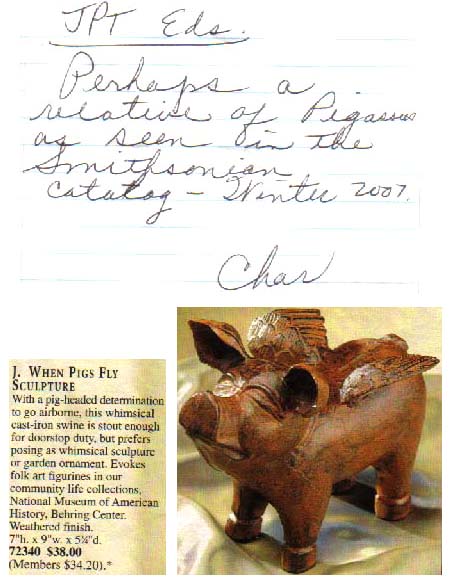 JPT Eds.
Perhaps a
relative of Pigassus
as seen in the
Smithsonian
Catatog - Winter 2007.
Char
J. WHEN PIGS FLY
SCULPTURE
With a pig-headed determination
to go airborne, this whimsical
cast-iron swine is stout enough
for doorstop duty, but prefers
posing as whimsical sculpture
or garden ornament. Evokes
folk art figurines in our
community life collections,
National Museum of American
History, Behring Center.
Weathered finish.
7"h. x 9"w. x 5¼"d.
72340 $38.00
(Members $34.20).*